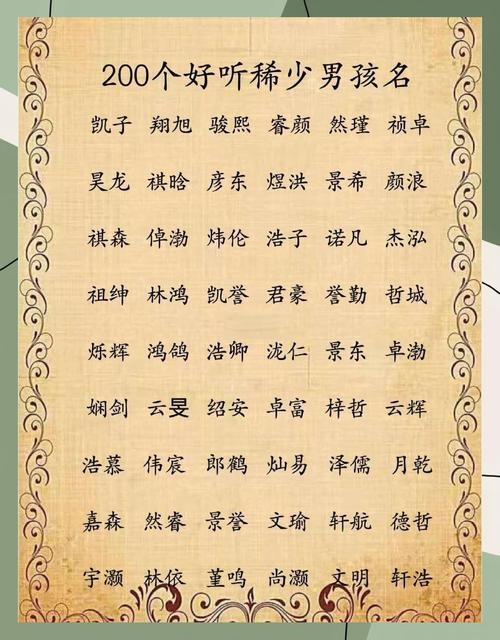 200个好听稀少男孩名
凯子 翔旭 骏熙 睿颜 然瑾 祯卓
昊龙 祺晗 彦东 煜洪 景希 颜浪
祺森 倬渤 炜伦 浩子 诺凡 杰泓
祖绅 林鸿 凯誉 君豪 誉勤 哲城
烁辉 鸿鸽 浩卿 泷仁 景东 卓渤
娴剑 云旻 绍安 卓富 梓哲 云辉
浩慕 伟宸 郎鹤 灿易 泽儒 月乾
嘉森 然睿 景誉 文瑜 轩航 德哲
宇灏 林依 董鸣 尚灏 文明 轩浩